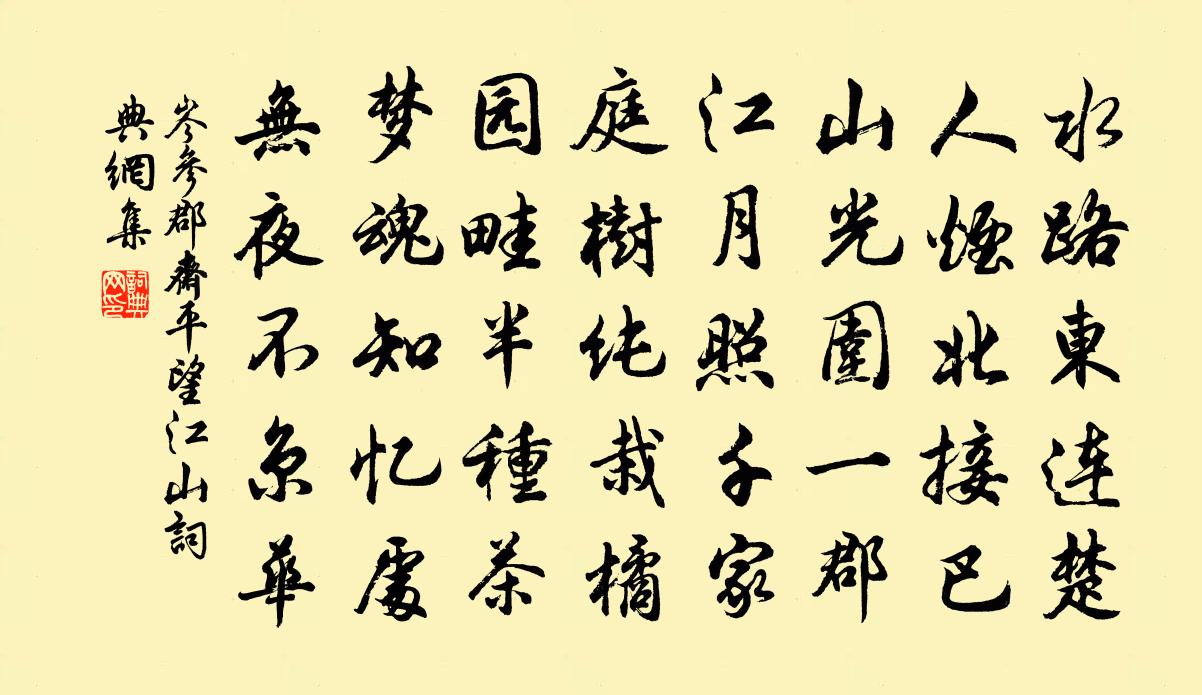 水路東连楚
人煙北接巴
山光圍一郡
江月照千家
庭樹纯栽橘
园畦半種茶
梦魂知忆處
無夜不京華
岑參郡齋平望江山詞
典網集
詞典網印